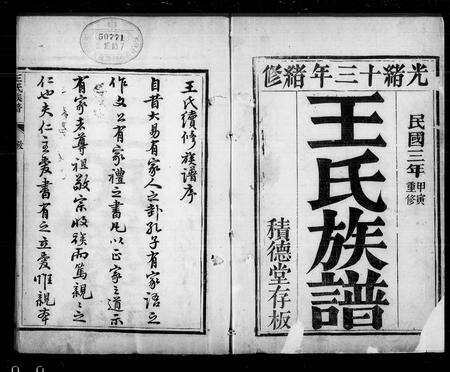 光緒十三年續修
民國三年
甲寅
重修
王氏族譜
積德堂存板
王氏續修族譜序
自昔大易有家人之卦孔子有家語之
作文公有家禮之書凡以正家之道示
有家者尊祖敬宗收族而篤親之之
仁也夫仁立愛書有之立愛惟親本
50771